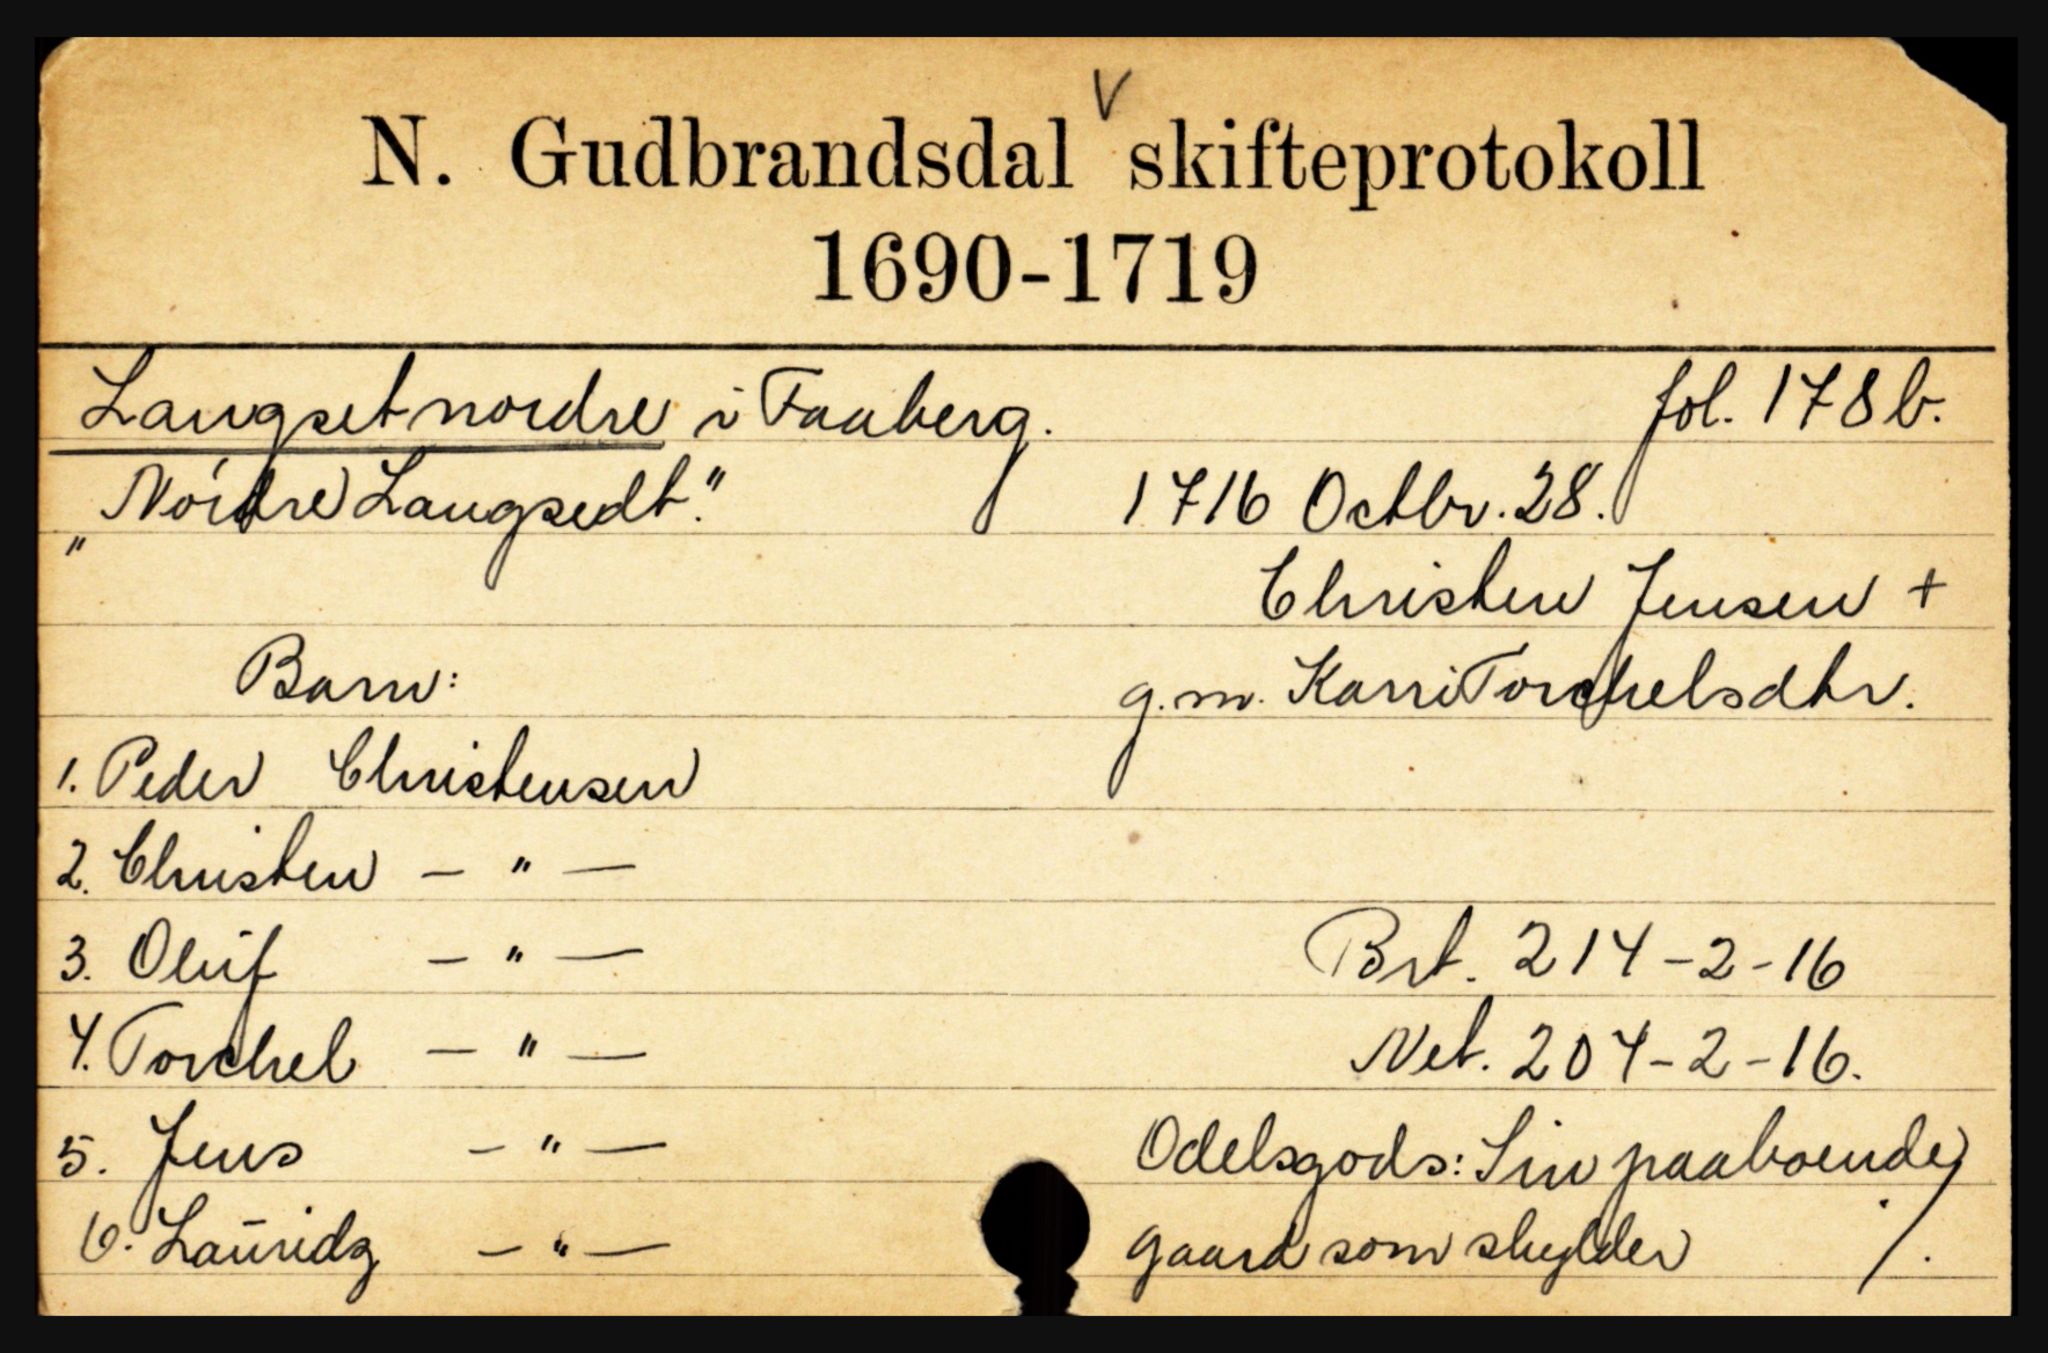 V
N. Gudbrandsdal skifteprotokoll
1690-1719
Langset nordre i Faaberg. fol. 178 b.
„Nordre Langsedt." 1716 Octbr. 28.
Christen Jensen +
Barn: g.m. Karri Torchelsdtr.
1. Peder Christensen
2. Christen — " —
3. Oluf — " — Brt. 214-2-16
4. Torchel — " — Net. 204-2-16.
5. Jens — " — Odelsgods: Sin paaboende
6. Lauridz — " — gaard som skylder ./.